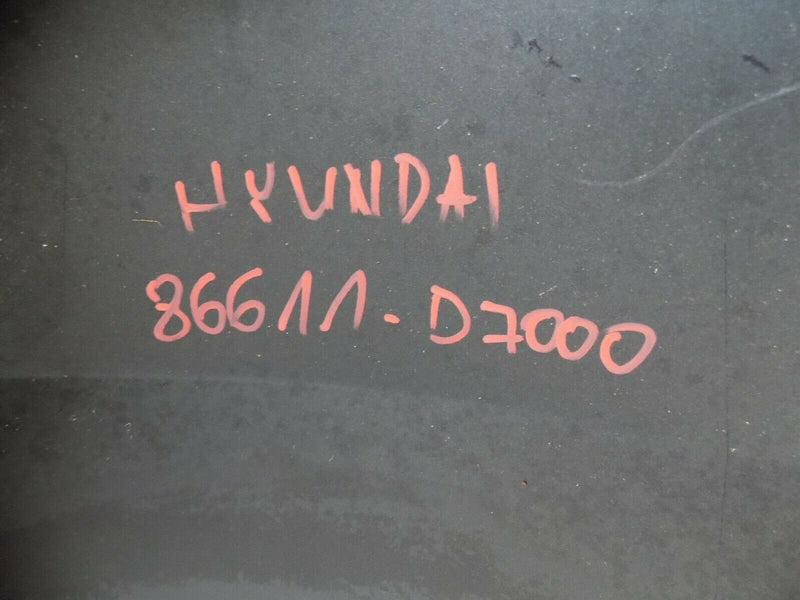 HYUNDAI
86611-D7000